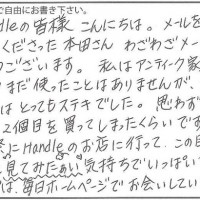 ご自由にお書き下さい。
dleの皆様 こんにちは。メールを
くださった本田さん わざわざメー
うございます。私はアンティーク家
まだ使ったことはありませんが、
はとってもステキでした。思わず
2個目を買ってしまったくらいです
際にHandleのお店に行って、この目
見てみたぁい気持ちでいっぱい
は、毎日ホームページでお会いしてい